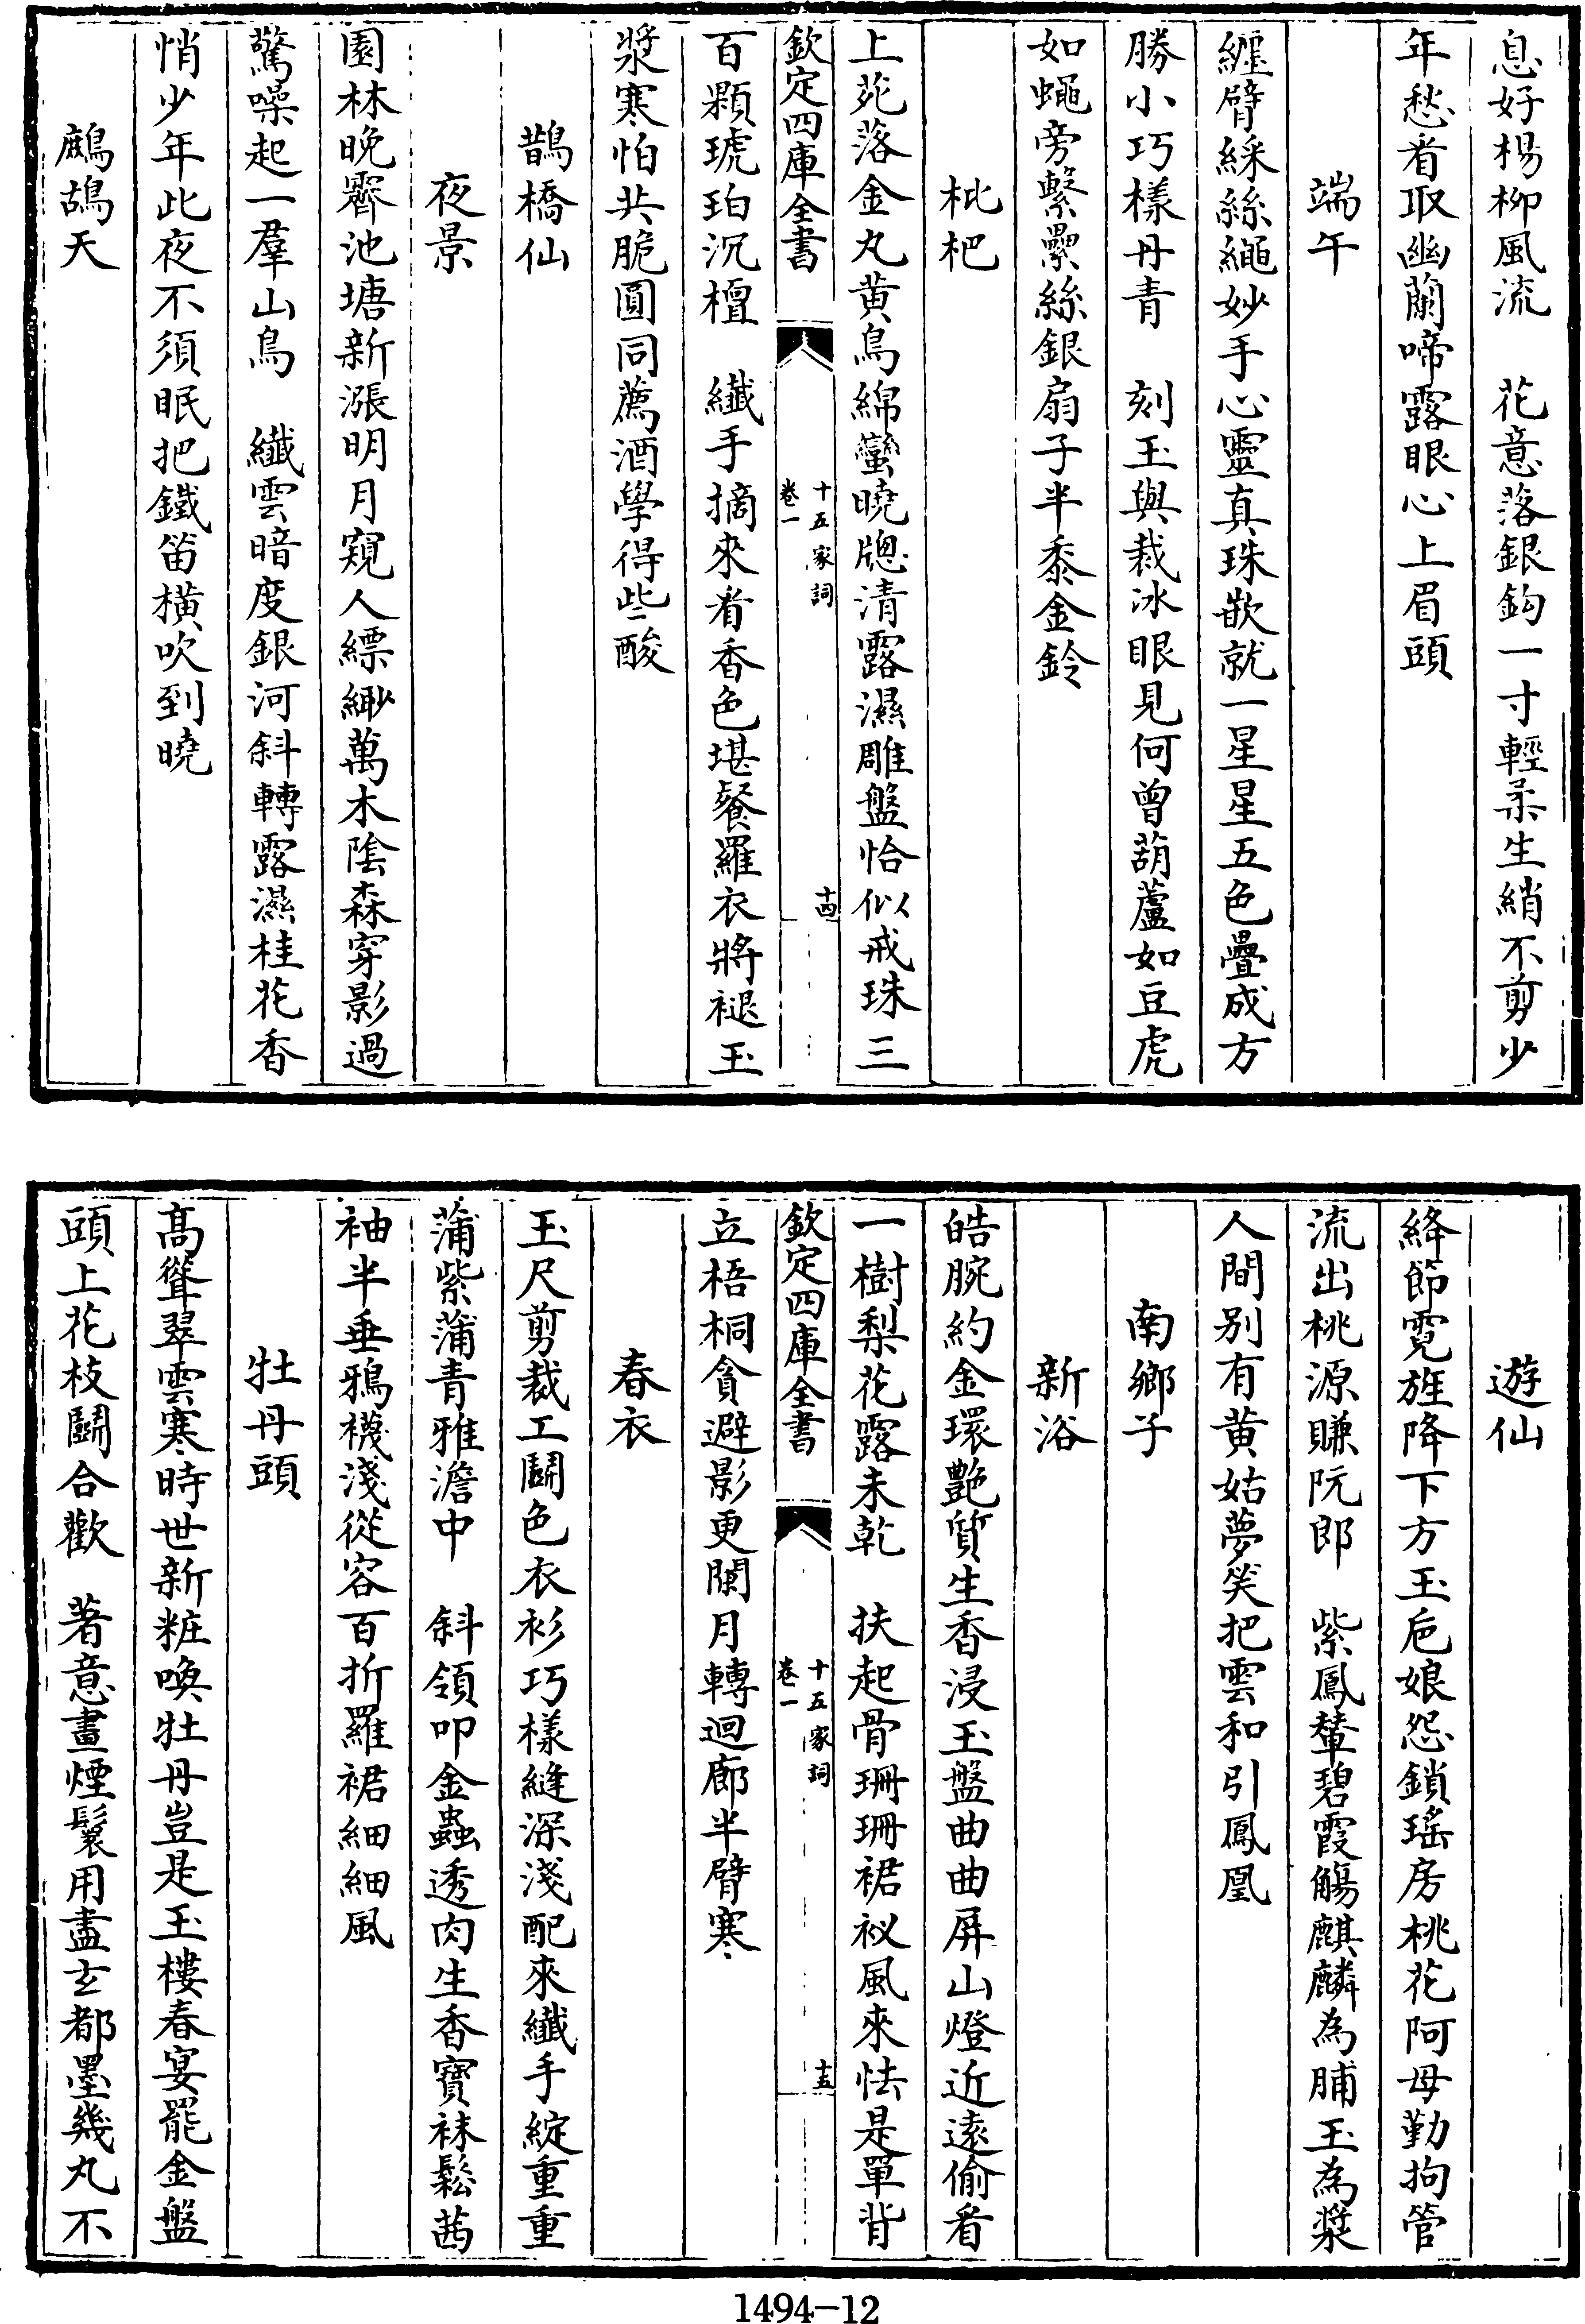 息好楊柳風流　花意落銀鈎一寸輕柔生綃不剪少
年愁看取幽蘭啼露眼心上眉頭
端午
纏臂綵絲繩妙手心靈真珠嵌就一星星五色疊成方
勝小巧樣丹青　刻玉與裁冰眼見何曾葫蘆如豆虎
如蠅旁繫纍絲銀扇子半黍金鈴
枇杷
上苑落金丸黄鳥綿蠻曉牕清露濕雕盤恰似戒珠三
欽定四庫全書
十五家詞
卷一
十四
百顆琥珀沉檀　纖手摘來看香色堪餐羅衣將褪玉
漿寒怕共脆圓同薦酒學得些酸
鵲橋仙
夜景
園林晚霽池塘新漲明月窺人縹緲萬木陰森穿影過
驚噪起一羣山鳥　纖雲暗度銀河斜轉露濕桂花香
悄少年此夜不須眠把鐵笛橫吹到曉
鷓鴣天
遊仙
絳節霓旌降下方玉巵娘怨鎖瑤房桃花阿母勤拘管
流出桃源賺阮郎　紫鳳輦碧霞觴麒麟為脯玉為漿
人間别有黄姑夢笑把雲和引鳳凰
南鄉子
新浴
皓腕約金環艷質生香浸玉盤曲曲屏山燈近遠偷看
一樹梨花露未乾　扶起骨珊珊裙衱風來怯是單背
欽定四庫全書
十五家詞
卷一
十五
立梧桐貪避影更闌月轉迴廊半臂寒
春衣
玉尺剪裁工鬭色衣衫巧樣縫深淺配來纖手綻重重
蒲紫蒲青雅澹中　斜領叩金蟲透肉生香寶袜鬆茜
袖半垂鴉襪淺從容百折羅裙細細風
牡丹頭
髙聳翠雲寒時世新粧喚牡丹豈是玉樓春宴罷金盤
頭上花枝鬭合歡　著意畫煙鬟用盡玄都墨幾丸不
1494-12